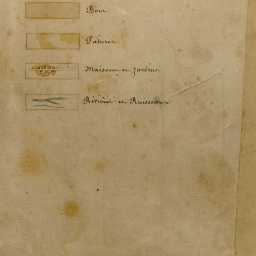 Bois
Patures
Maisons et Jardins
Rivières et Ruisseaux